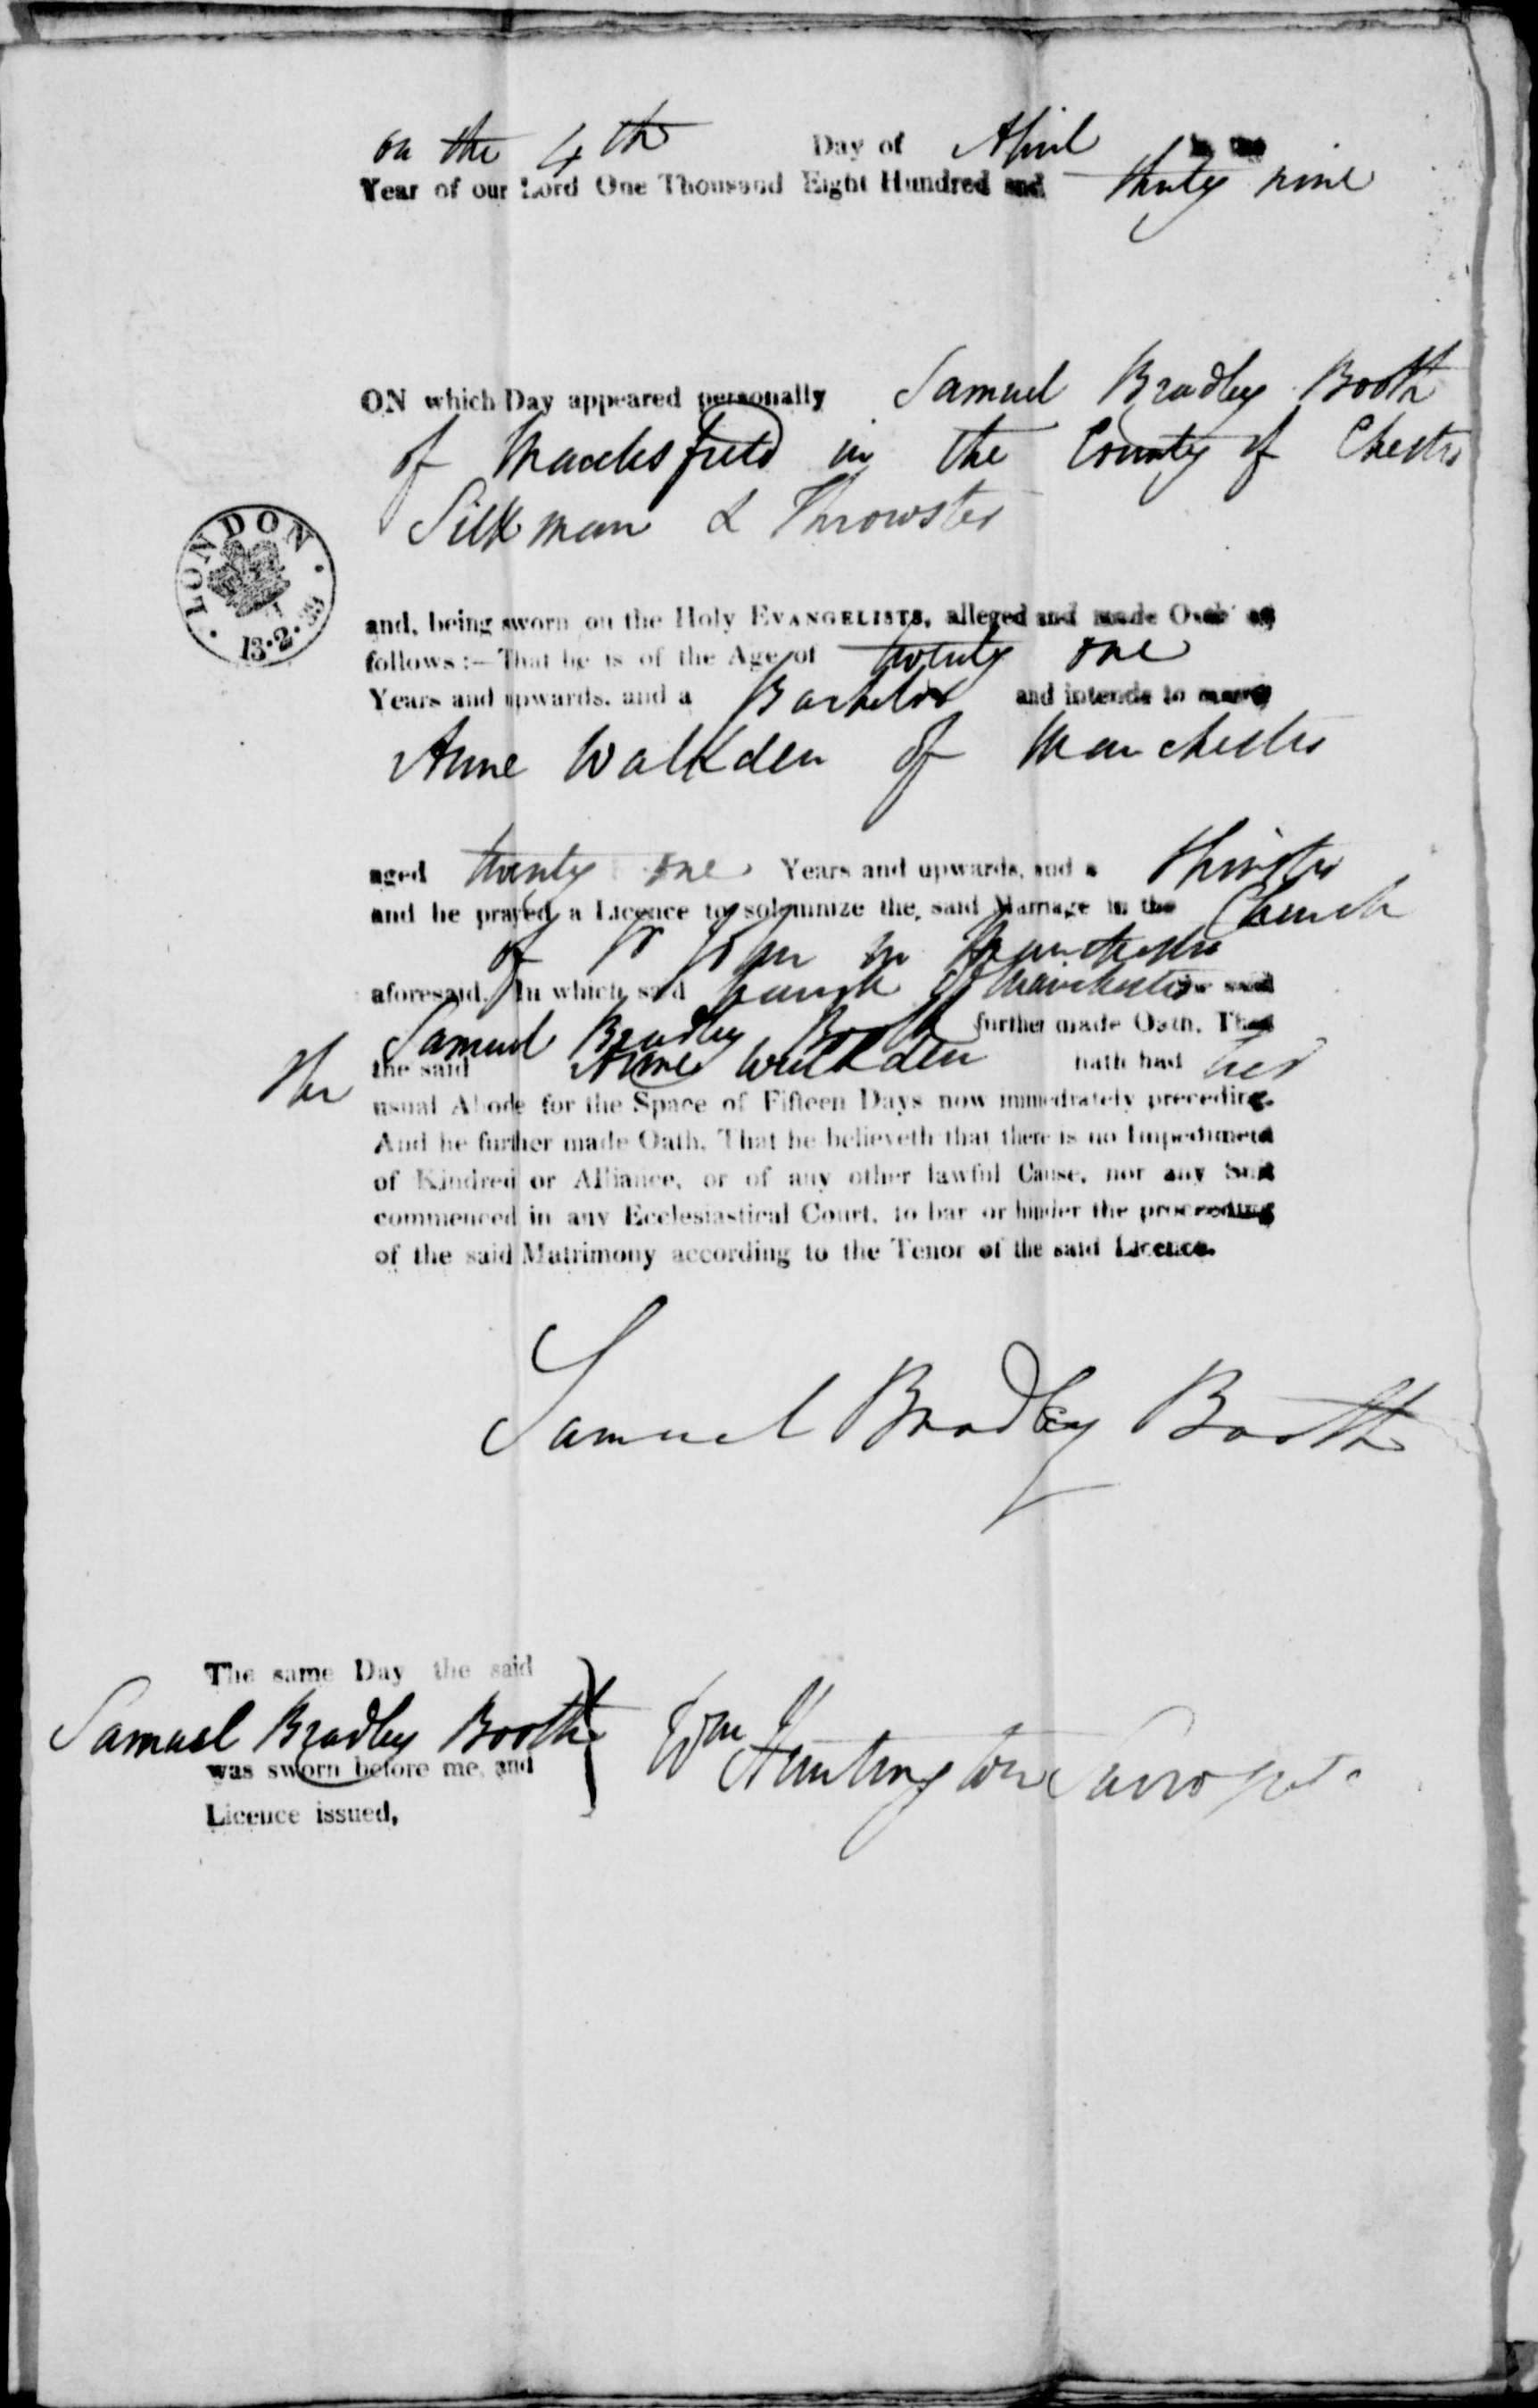 on the 4th Day of April in the
Year of our Lord One Thousand Eight Hundred and thirty nine
ON which Day appeared personally Samuel Bradley Booth
of Macclesfield in the County of Chester
Silkman & Throwster
LONDON
13.2.39
and, being sworn on the Holy EVANGELISTS, alleged and made Oath as
follows:—That he is of the Age of twenty one
Years and upwards, and a Bachelor and intends to marry
Anne Walkden of Manchester
aged twenty one Years and upwards, and a Spinster
and he prayed a Licence to solemnize the said Marriage in the Church
of St John in Manchester
aforesaid. In which said parish of Manchester the said
Samuel Bradley Booth further made Oath, That
the said Anne Walkden hath had her
usual Abode for the Space of Fifteen Days now immediately preceding.
And he further made Oath, That he believeth that there is no Impediment
of Kindred or Alliance, or of any other lawful Cause, nor any Suit
commenced in any Ecclesiastical Court, to bar or hinder the proceeding
of the said Matrimony according to the Tenor of the said Licence.
Samuel Bradley Booth
The same Day the said
Samuel Bradley Booth
was sworn before me, and
Licence issued,
Wm Huntington Surrogate